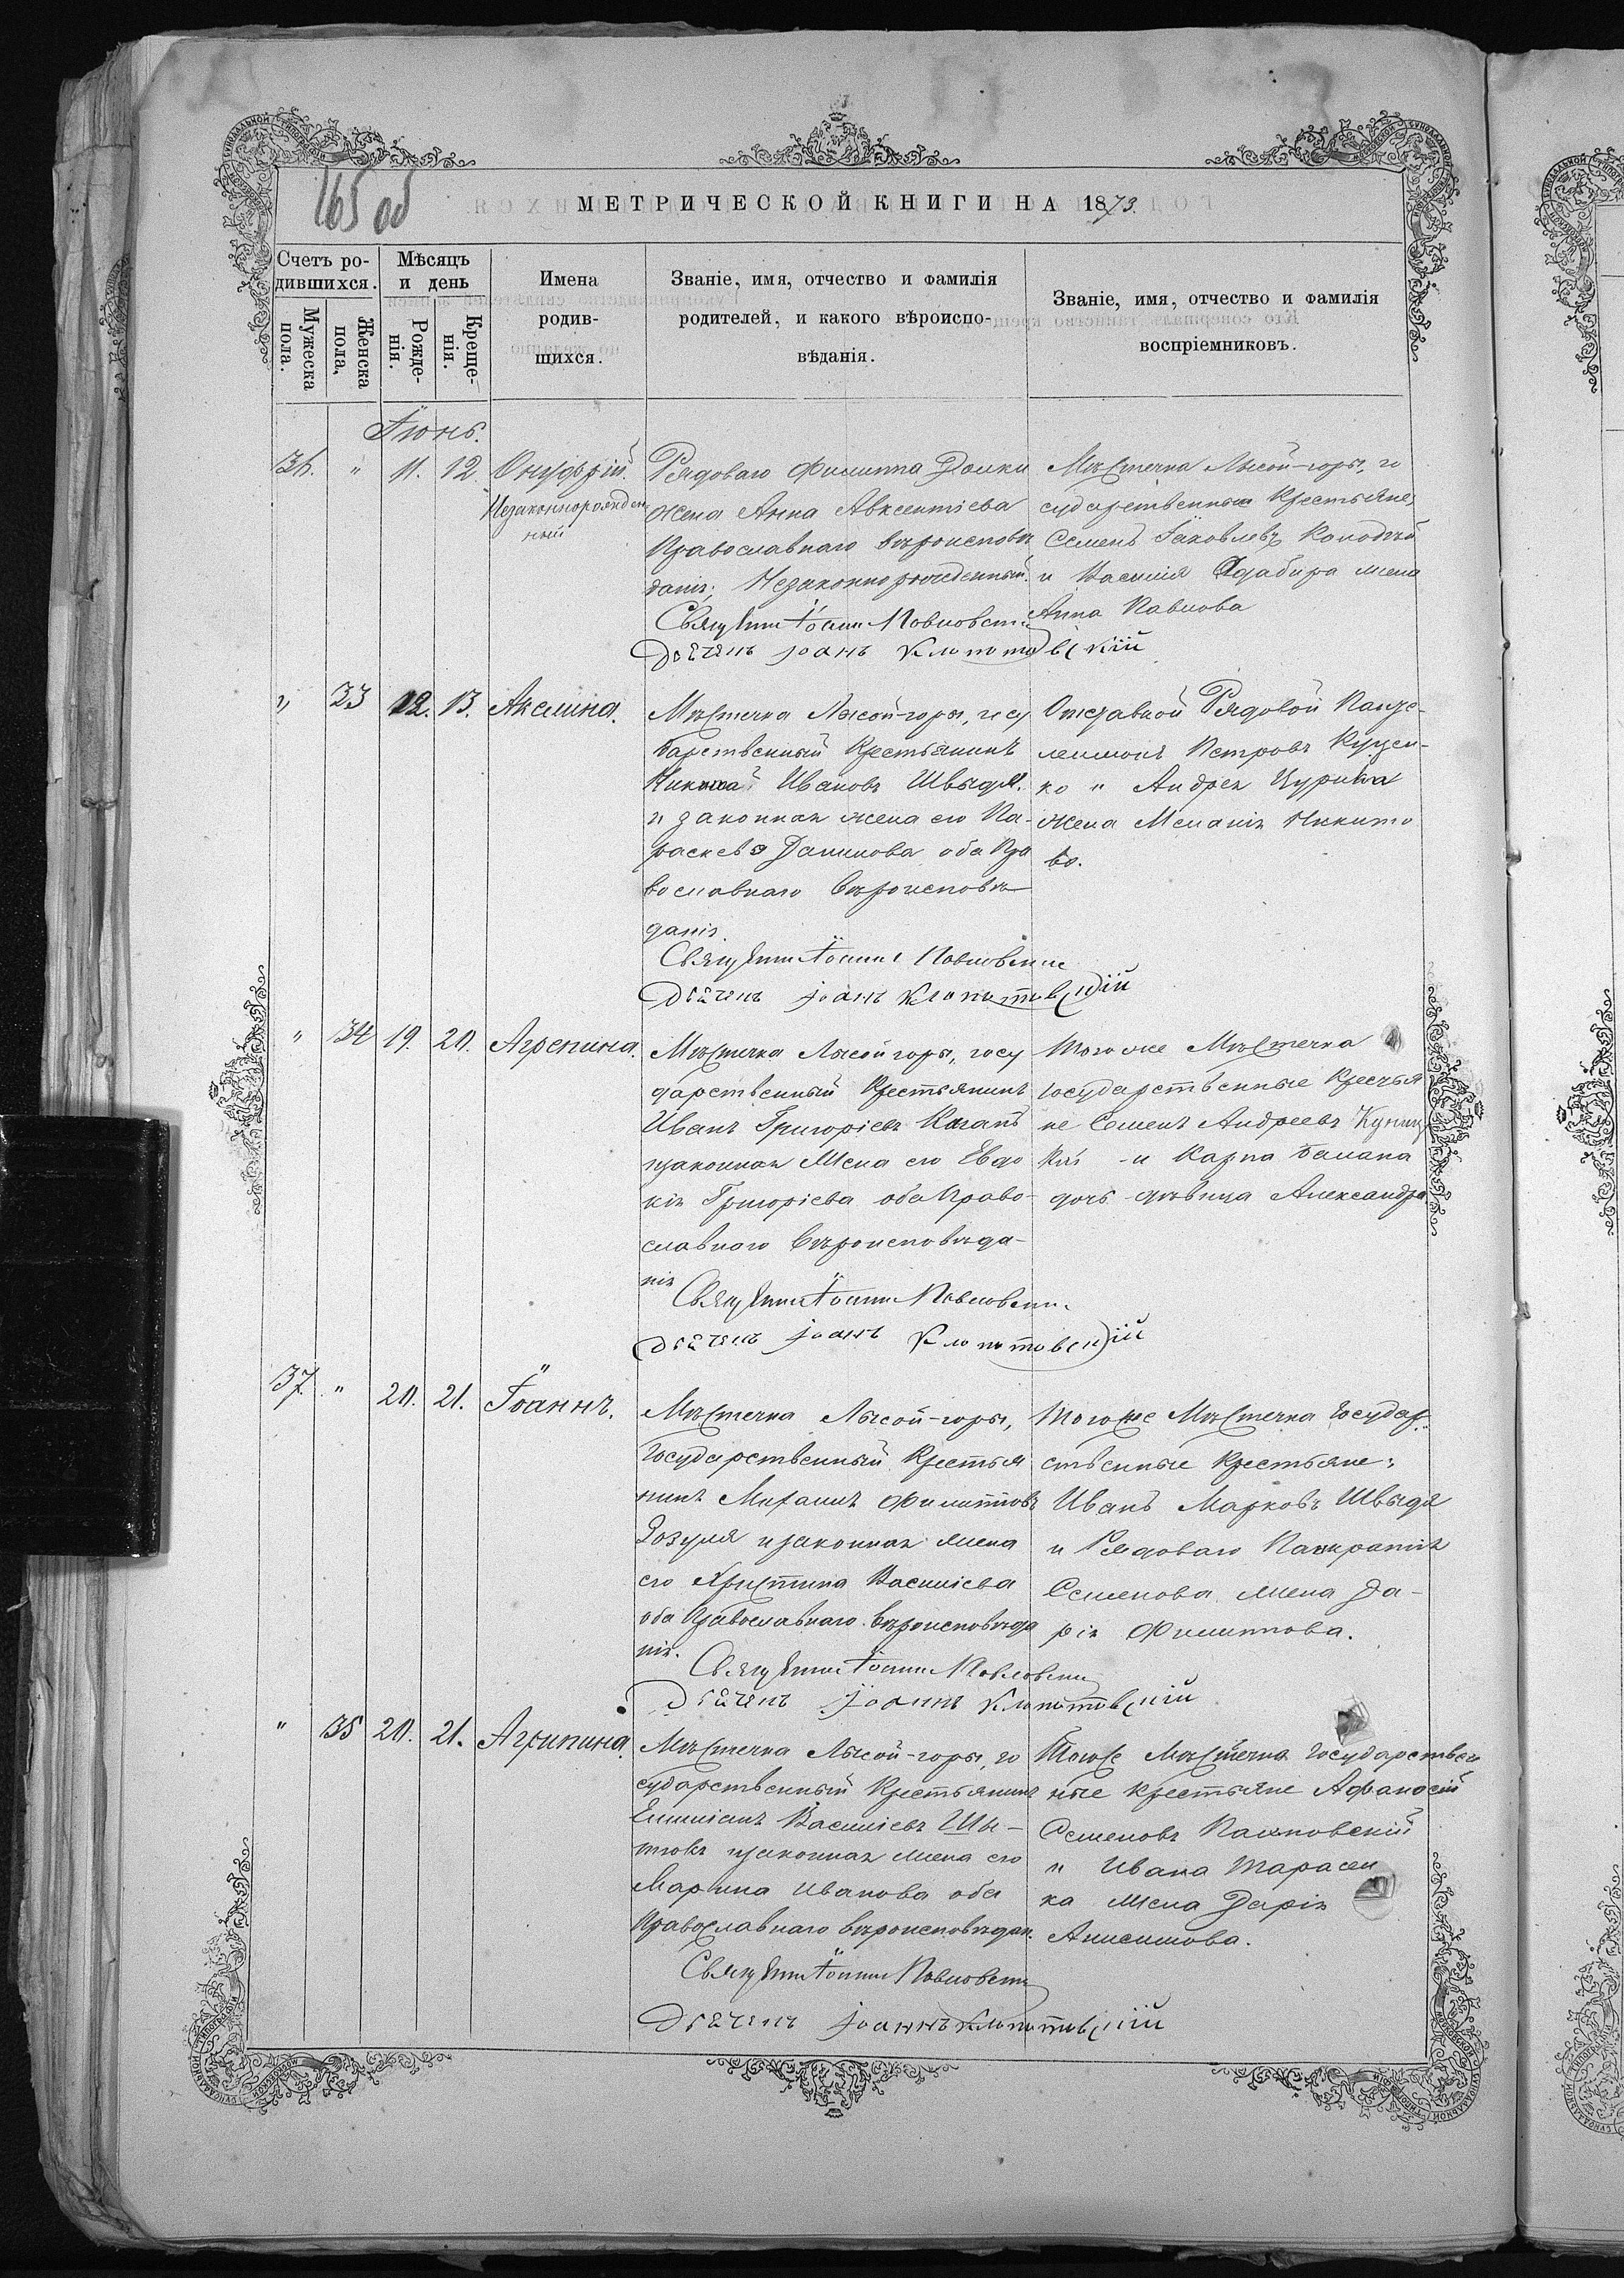 165 об
МЕТРИЧЕСКОЙ КНИГИ НА 1873.
Счетъ ро-
дившихся.
Мужеска
пола.
Женска
пола,
Мѣсяцъ
и день
Рожде-
нія.
Креще-
нія.
Имена
родив-
шихся.
Званіе, имя, отчество и фамилія
родителей, и какого вѣроиспо-
вѣданія.
Званіе, имя, отчество и фамилія
воспріемниковъ.
Іюнь.
36. " 11. 12. Онуфрій.
Незаконнорожден
ный
Рядоваго Филиппа Домки
жена Анна Авксентіева
Православнаго вѣроисповѣ
данія; Незаконнорожденный.
Іоаннъ
Іоанъ Клопотовскій
Мѣстечка Лысой-горы, го
сударственные Крестьяне,
Семенъ Іаковлевъ
и Василія жена
Анна Павлова
" 33 12. 13. Акилина.
Мѣстечка Лысой-горы, госу
дарственный Крестьянинъ
Николай Ивановъ Швыдя.
и законная жена его Па-
раскева Данилова оба Пра
вославнаго вѣроисповѣ
данія
Іоаннъ
Іоанъ Клопотовскій
Отставной Рядовой Панте-
леимонъ Петровъ Куцен-
ко и Андрея Цурика
жена Меланія Никито
ва.
" 34 19. 20. Агрепина.
Мѣстечка Лысой горы, госу
дарственный Крестьянинъ
Иванъ Григоріевъ
изаконная жена его Евдо
кія Григоріева оба Право-
славнаго вѣроисповѣда-
нія
Іоаннъ
Іоанъ Клопотовскій
Того же Мѣстечка
государственные Кресья
не Семенъ Андреевъ Куниц
кій и Карпа Балана
дочь дѣвица Александра
37. " 20. 21. Іоаннъ.
Мѣстечка Лысой-горы,
Государственный Крестья
нинъ Михаилъ Филипповъ
Зозуля изаконная жена
его Христина Василіева
оба Православнаго вѣроисповѣда
нія.
Іоаннъ
Іоаннъ Клопотовскій
Тогоже Мѣстечка Государ-
ственные Крестьяне:
Иванъ Марковъ Швыдя
и Рядоваго Панкратія
Семенова жена Да-
рія Филиппова.
" 35 20. 21. Агрипина.
Мѣстечка Лысой-горы, го
сударственный Крестьянинъ
Василіевъ Ши-
изаконная жена его
Марина Иванова оба
Православнаго вѣроисповѣдан.
Іоаннъ
Іоаннъ Клопотовскій
Тогоже Мѣстечка Государствен
ные крестьяне Афанасій
Семеновъ
и Ивана Тарасен
ка жена Дарія
Анисимова.